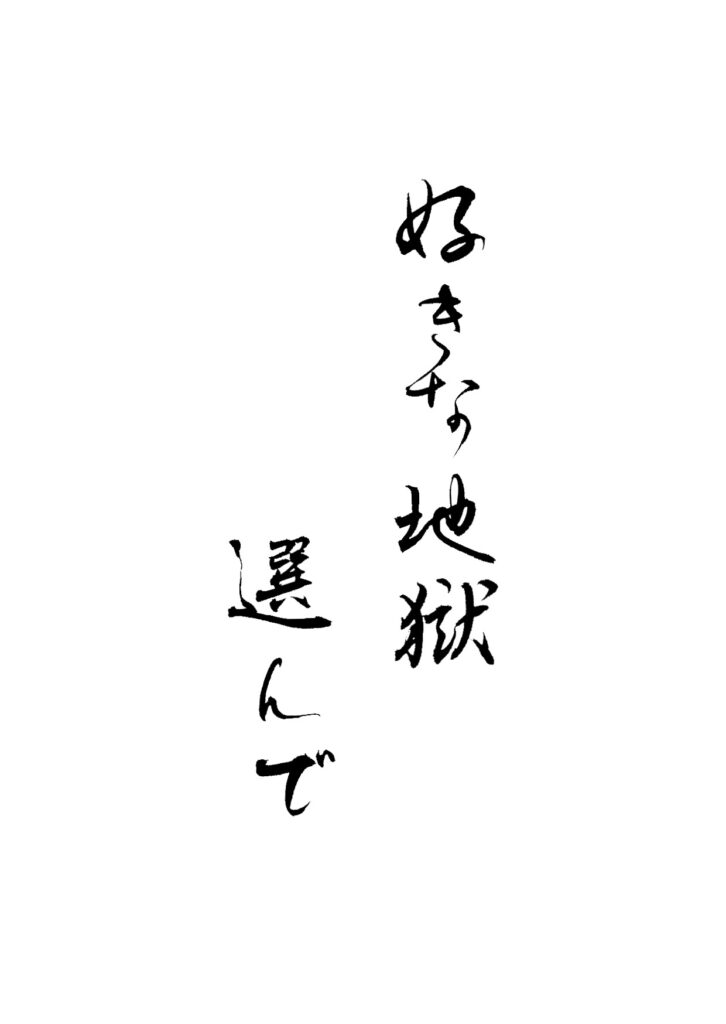 好きな地獄
選んで